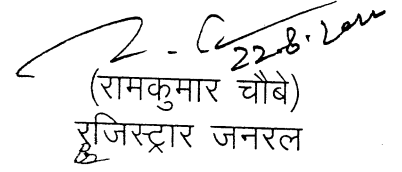 22.8.2022
(रामकुमार चौबे)
रजिस्ट्रार जनरल